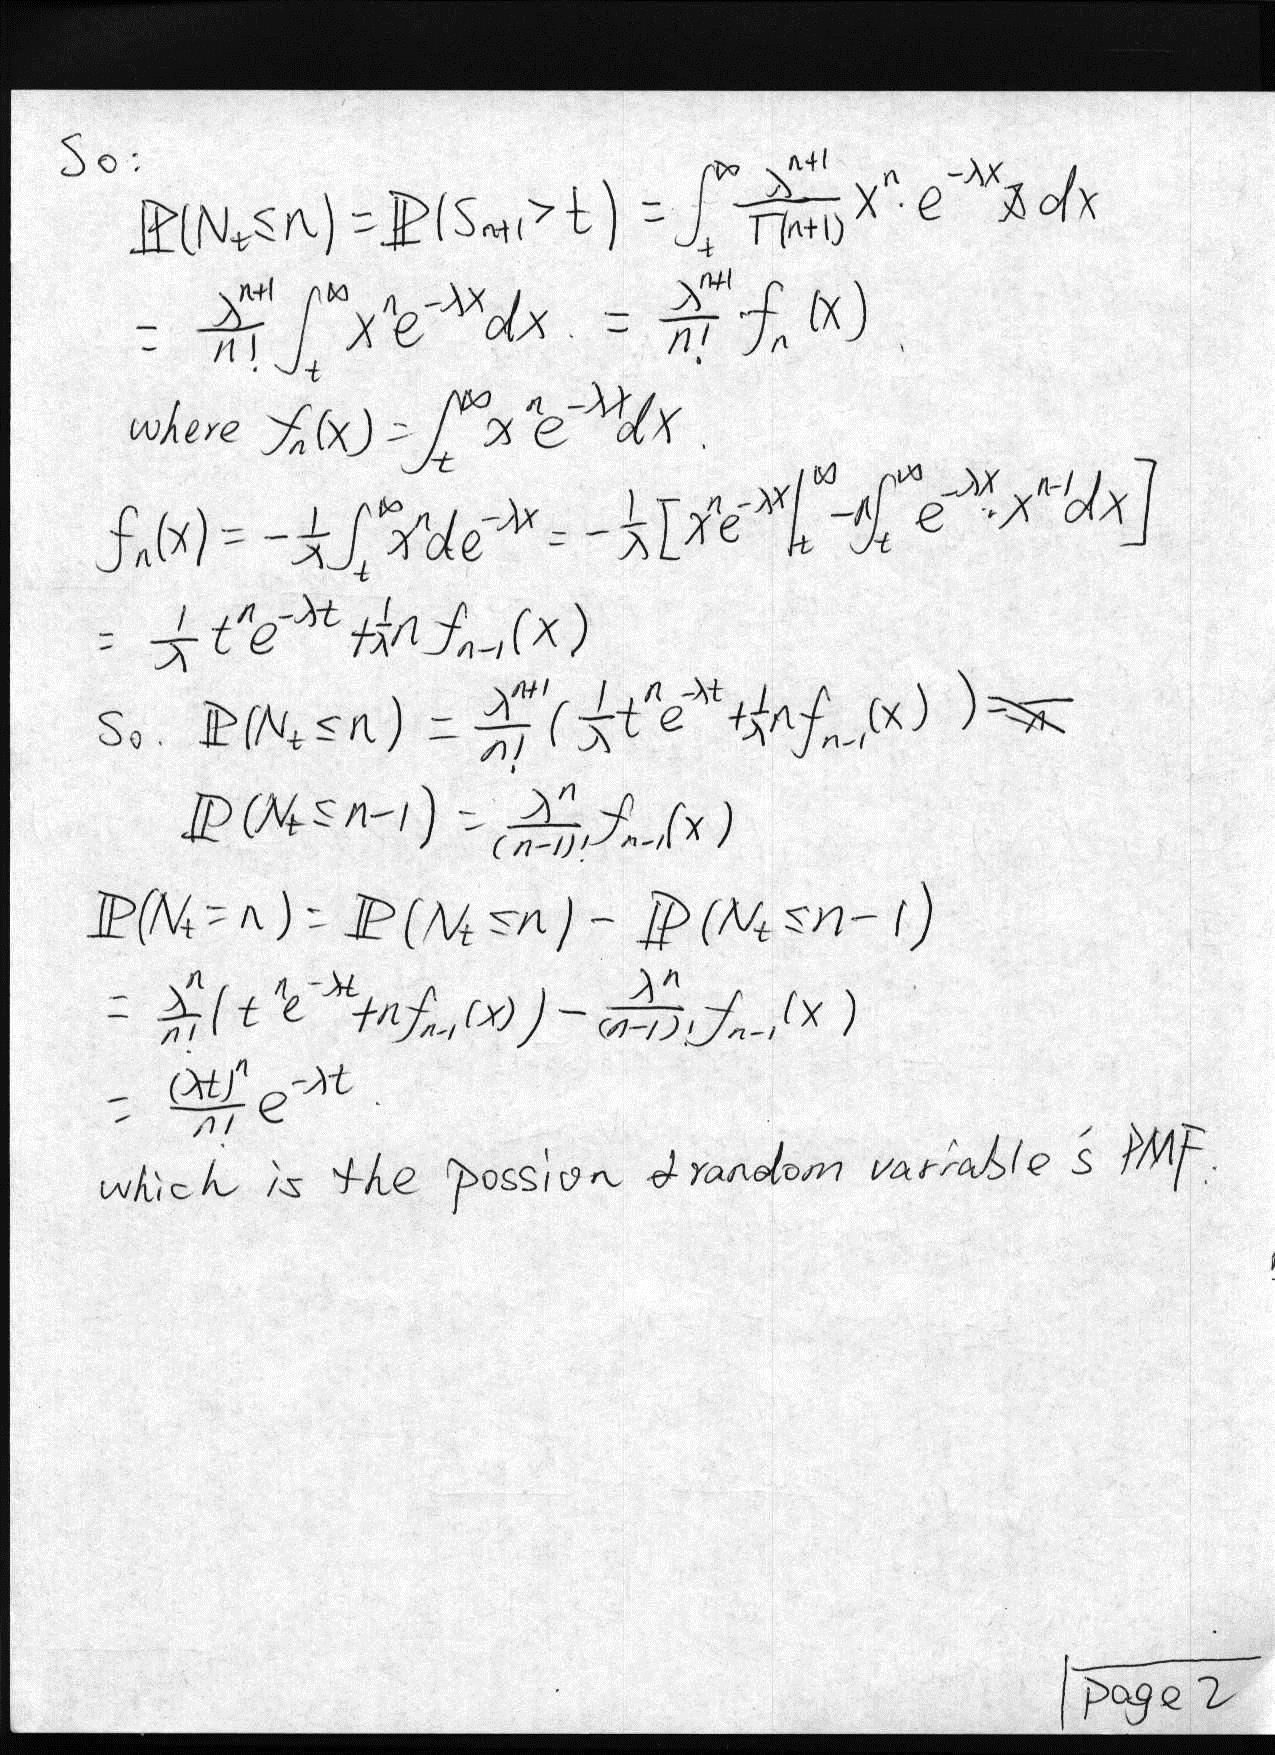 So:
ℙ(N_t ≤ n) = ℙ(S_{n+1} > t) = ∫_t^∞ λ^{n+1}/Γ(n+1) x^n · e^{-λx} dx
= λ^{n+1}/n! ∫_t^∞ x^n e^{-λx} dx. = λ^{n+1}/n! · f_n(x).
where f_n(x) = ∫_t^∞ x^n e^{-λx} dx.
f_n(x) = -1/λ ∫_t^∞ x^n de^{-λx} = -1/λ [x^n e^{-λx}|_t^∞ - n∫_t^∞ e^{-λx} · x^{n-1} dx]
= 1/λ t^n e^{-λt} + 1/λ n f_{n-1}(x)
So. ℙ(N_t ≤ n) = λ^{n+1}/n! (1/λ t^n e^{-λt} + 1/λ n f_{n-1}(x))
ℙ(N_t ≤ n-1) = λ^n/(n-1)! f_{n-1}(x)
ℙ(N_t = n) = ℙ(N_t ≤ n) - ℙ(N_t ≤ n-1)
= λ^n/n! (t^n e^{-λt} + n f_{n-1}(x)) - λ^n/(n-1)! f_{n-1}(x)
= (λt)^n/n! e^{-λt}.
which is the possion random variable's PMF.
page 2